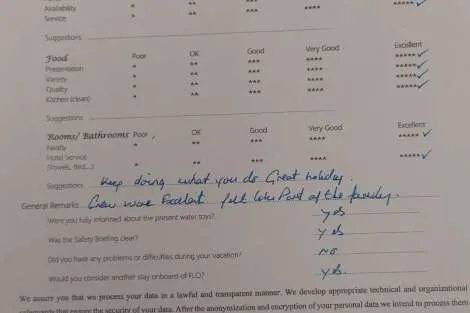 Availability * ** *** **** ***** ✓
Service * ** *** **** ***** ✓
Suggestions
Food Poor OK Good Very Good Excellent
Presentation * ** *** **** ***** ✓
Variety * ** *** **** ***** ✓
Quality * ** *** **** ***** ✓
Kitchen (clean) * ** *** **** ***** ✓
Suggestions
Rooms/Bathrooms Poor OK Good Very Good Excellent
Neatly * ** *** **** ***** ✓
Hotel Service
(Towels, Bed...) * ** *** **** ***** ✓
Suggestions Keep doing what you do Great holiday.
General Remarks Crew were Excelent fell like Part of the family.
Were you fully informed about the present water toys? yes
Was the Safety Briefing clear? yes
Did you have any problems or difficulties during your vacation? no
Would you consider another stay onboard of FLO? yes.
We assure you that we process your data in a lawful and transparent manner. We develop appropriate technical and organizational
safeguards that ensure the security of your data. After the anonymization and encryption of your personal data we intend to process them